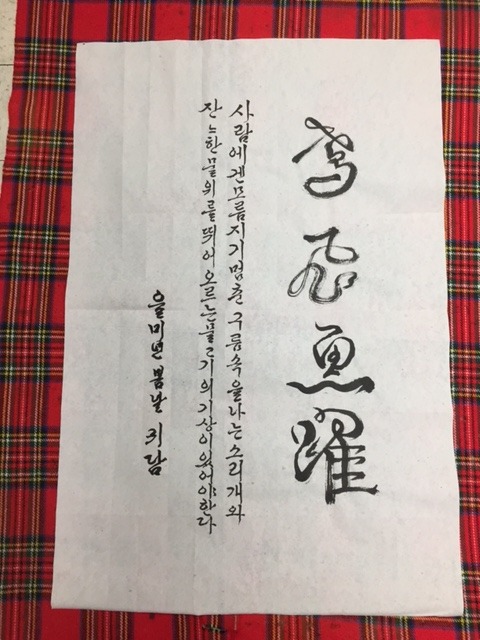 鳶飛魚躍
사람에겐모름지기멈춘구름속을나는소리개와
잔々한물위를뛰어오르는물고기의기상이있어야한다
을미년봄날